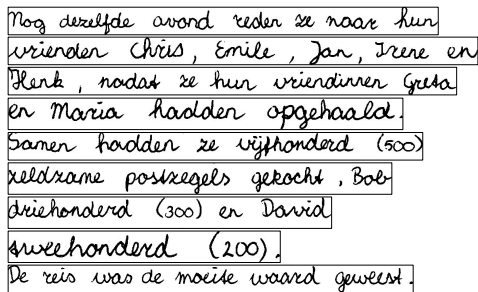 Nog dezelfde avond reden ze naar hun
vrienden Chris, Emile, Jan, Irene en
Henk, nadat ze hun vriendinnen Greta
en Maria hadden opgehaald.
Samen hadden ze vijfhonderd (500)
zeldzame postzegels gekocht, Bob
driehonderd (300) en David
tweehonderd (200).
De reis was de moeite waard geweest.